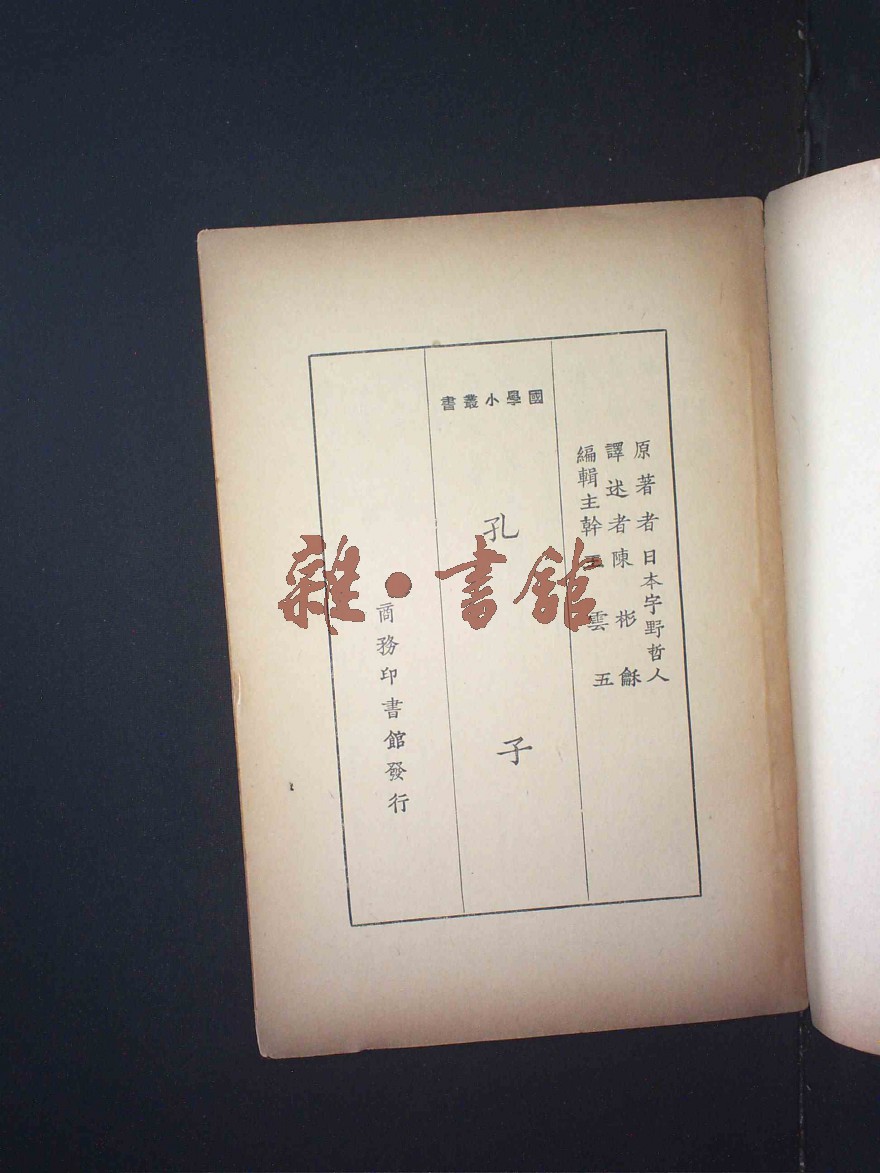 原著者日本宇野哲人
譯述者陳彬龢
編輯主幹王雲五
國學小叢書
孔子
商務印書館發行
雜·書館